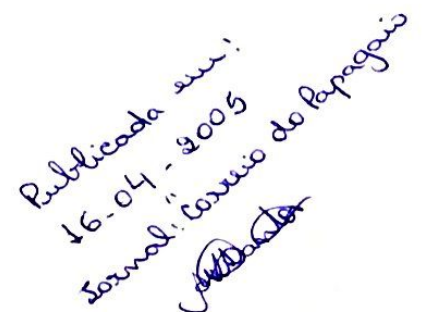 Publicada em:
16-04-2005
Jornal: "Correio do Papagaio